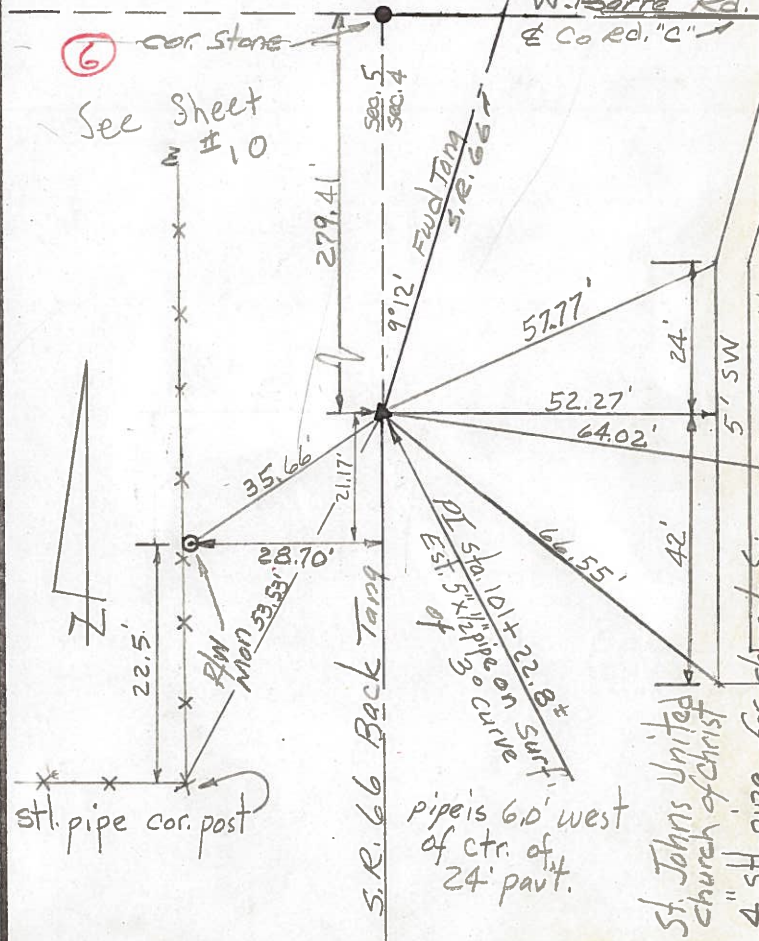 W. Barre Rd.
& Co Rd. "C"
6
cor. stone
See Sheet
#10
Sec. 5
Sec. 4
279.4'
Fwd Tang
S.R. 66
9°12'
57.77'
24'
5' SW
52.27'
64.02'
35.66'
21.17'
28.70'
53.53'
66.55'
42'
22.5'
R/W
Mon
N
PI Sta. 101 + 22.8±
Est. 5" x 1/2" pipe on surf.
of
3° curve
S.R. 66 Back Tang
stl. pipe cor. post
pipe is 6.0' west
of ctr. of
24' pav't.
St. Johns United
Church of Christ
4" stl pipe for